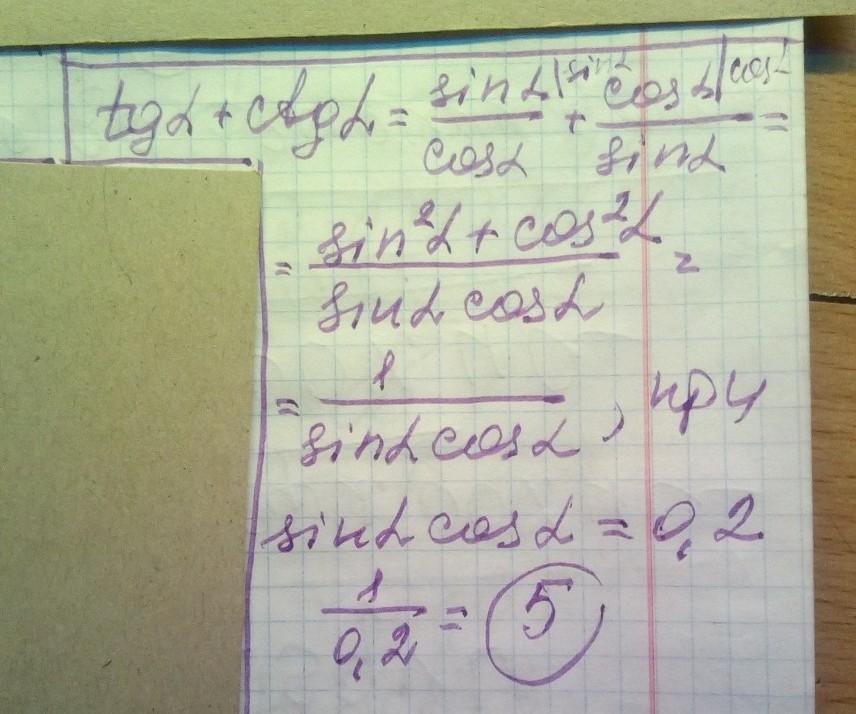 tgα + ctgα = sinα|sinα / cosα + cosα|cosα / sinα =
= sin²α + cos²α / sinα cosα =
= 1 / sinα cosα, при
sinα cosα = 0,2
1 / 0,2 = 5